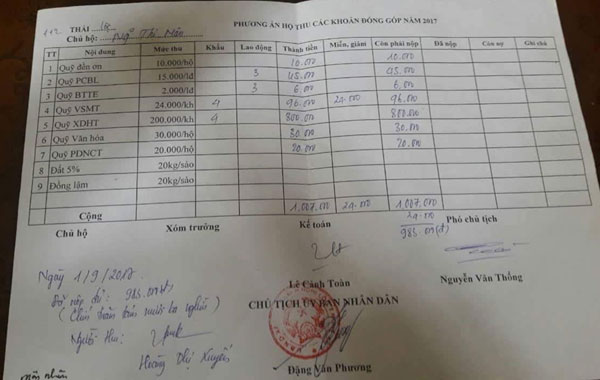 PHƯƠNG ÁN HỘ THU CÁC KHOẢN ĐÓNG GÓP NĂM 2017
THÁI
Chủ hộ: Thị Mão
TT Nội dung Mức thu Khẩu Lao động Thành tiền Miễn, giảm Còn phải nộp Đã nộp Còn nợ Ghi chú
1 Quỹ đền ơn 10.000/hộ 10.000 10.000
2 Quỹ PCBL 15.000/lđ 3 45.000 45.000
3 Quỹ BTTE 2.000/lđ 3 6.000 6.000
4 Quỹ VSMT 24.000/kh 4 96.000 24.000 96.000
5 Quỹ XDHT 200.000/kh 4 800.000 800.000
6 Quỹ Văn hóa 30.000/hộ 30.000 30.000
7 Quỹ PDNCT 20.000/hộ 20.000 20.000
8 Đất 5% 20kg/sào
9 Đồng lâm 20kg/sào
Cộng 1.007.000 24.000 1.007.000
24.000
983.000(đ)
Chủ hộ Xóm trưởng Kế toán Phó chủ tịch
Lê Cảnh Toàn Nguyễn Văn Thống
Ngày 1/9/2017
Đã nộp đủ: 983.000đ
(Chín trăm tám mươi ba nghìn)
Người thu:
Hoàng Thị Xuyến
CHỦ TỊCH ỦY BAN NHÂN DÂN
Đặng Văn Phương